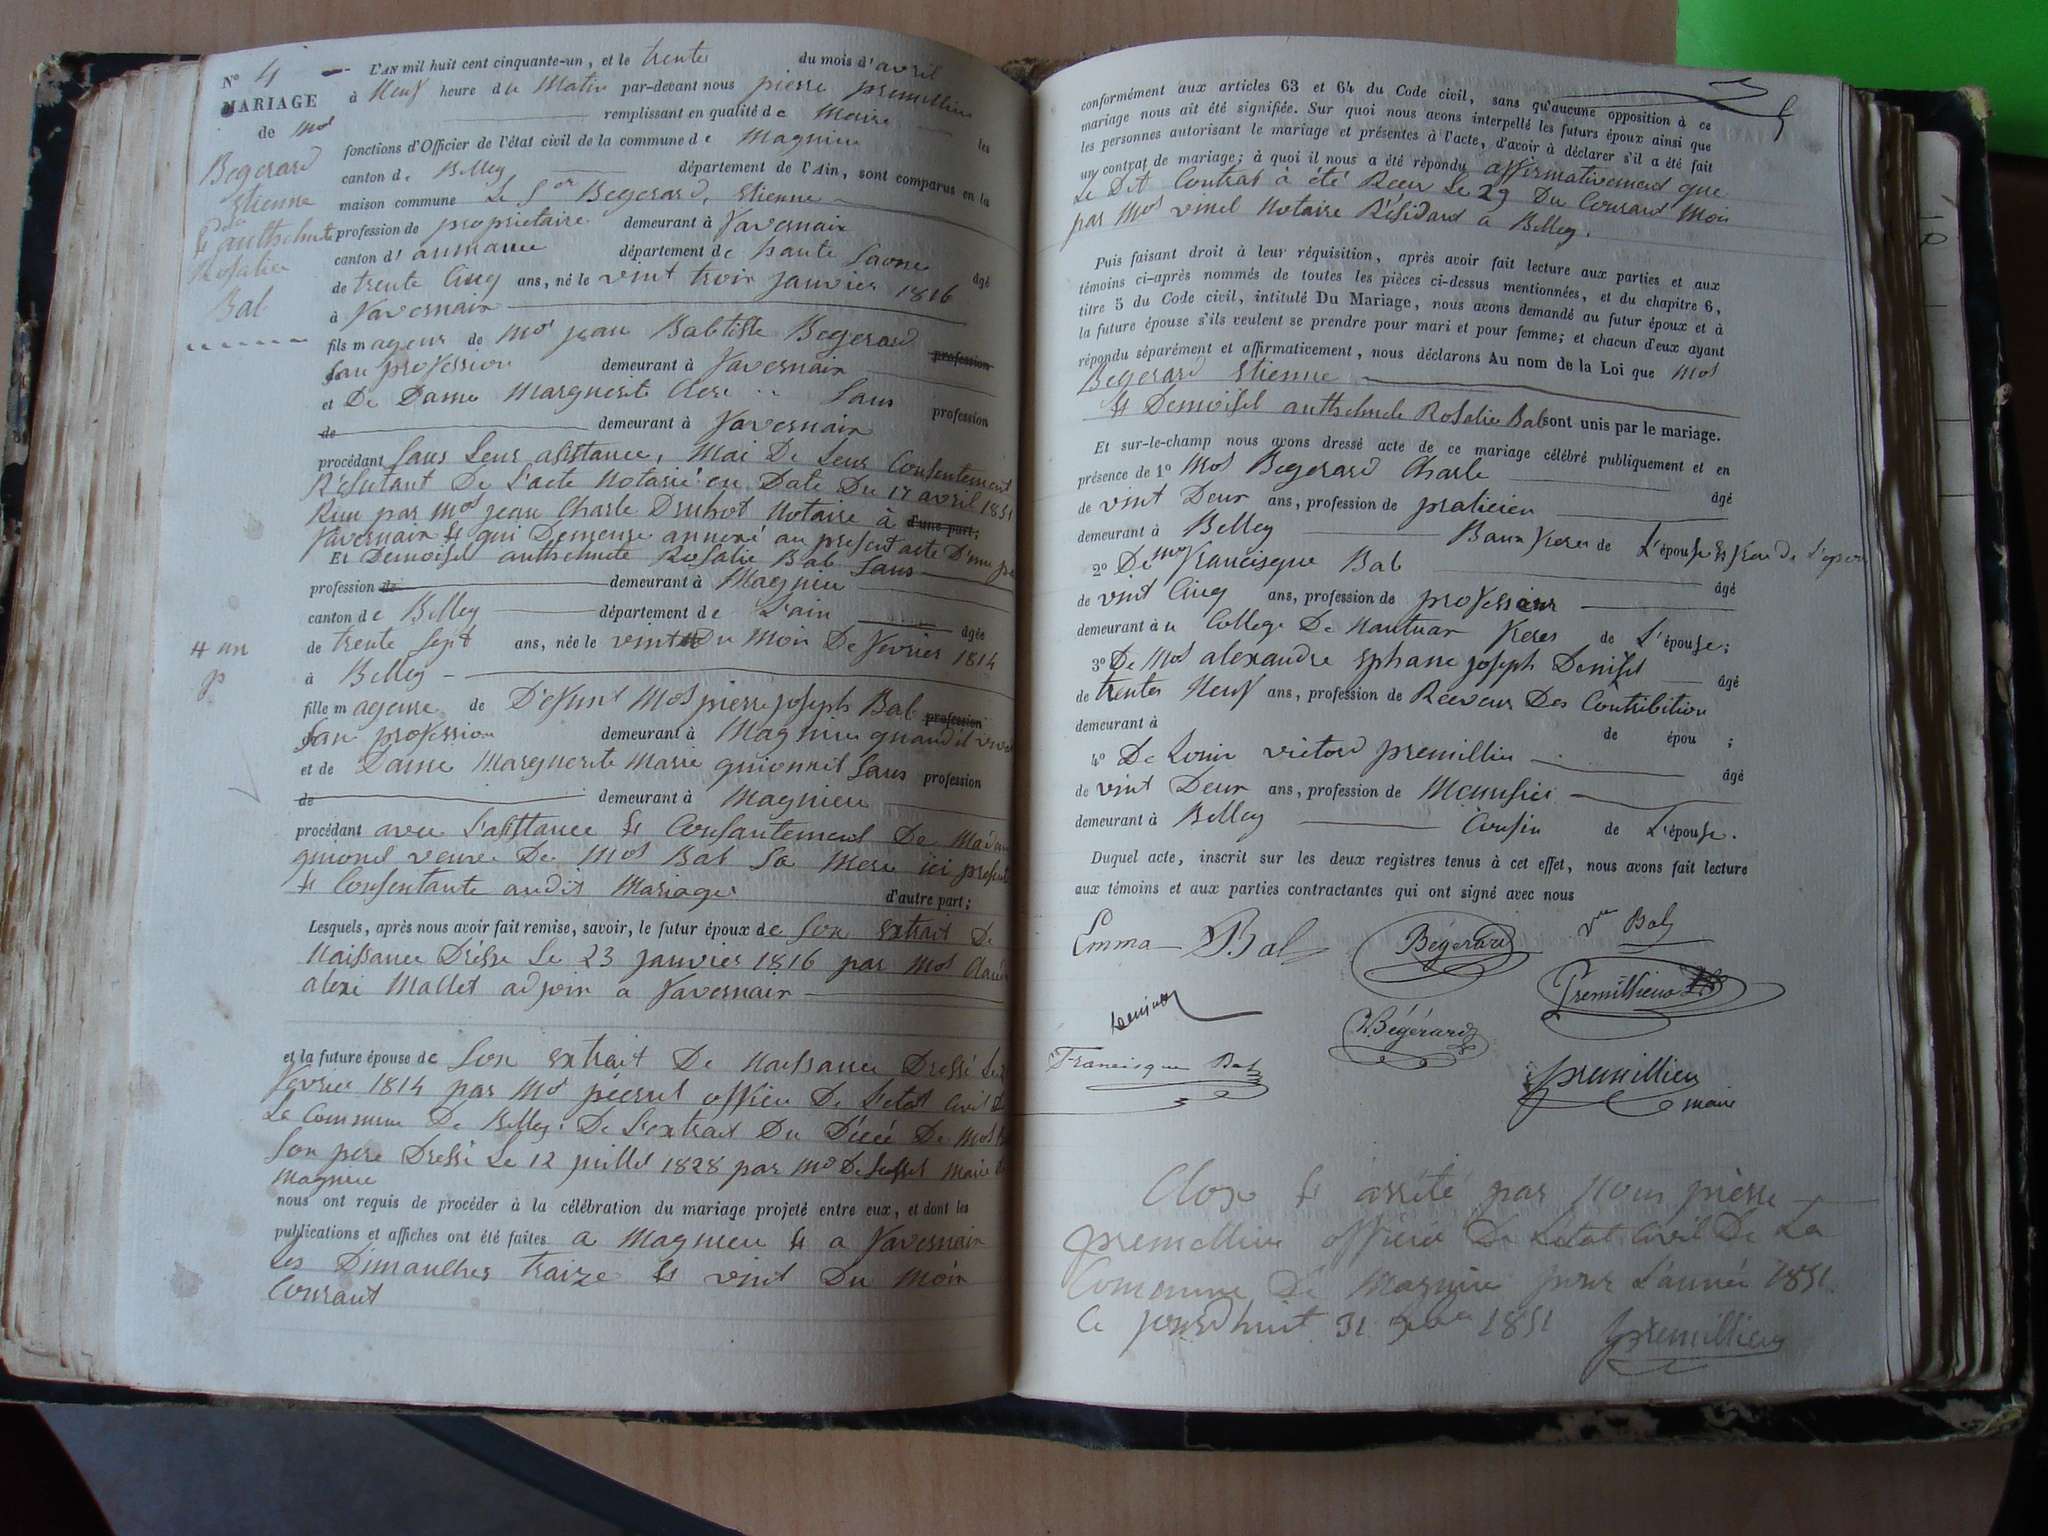 N° 4
MARIAGE
de Mos
Begerard
Etienne
Et anthelmete
Rosalie
Bal
L'AN mil huit cent cinquante-un, et le trente du mois d'avril
à Neuf heure du Matin par-devant nous pierre premillieu
remplissant en qualité de Maire les
fonctions d'Officier de l'état civil de la commune de Magnieu
canton de Belley département de l'Ain, sont comparus en la
maison commune Le Sor Begerard, Etienne
profession de proprietaire demeurant à Favernair
canton d' département de haute Saone
âgé
de trente Cinq ans, né le vint troir janvier 1816
à Favernair
fils mageur de Mos jean Babtiste Begerard profession
San profession demeurant à Favernair
et De Dame Marguerite Clere Sans profession
de demeurant à Favernair
procédant Sans Leur asistance, Mai De Leur Consentement
Résultant De L'acte Notarié en Date Du 17 avril 1851
Reuu par Mos jean Charle Druhot Notaire à d'une part;
Favernair Et qui Demeure annexé au present acte D'une par
Et Demoisel anthelmete Rosalie Bal Sans
profession de demeurant à Magnieu
canton de Belley département de L'ain
âgée
de trente Sept ans, née le vint Du Moir De Fevrier 1814
# un
p
à Belley
fille mageure de Défunt Mos pierre joseph Bal profession
San profession demeurant à Magnieu quand il vivai
et de Dame Marguerite Marie guionnet Sans profession
de demeurant à Magnieu
procédant avec L'asittance Et Consantement De Madam
guionet veuve De Mos Bal Sa Mere ici present
Et Consentante audit Mariage d'autre part;
Lesquels, après nous avoir fait remise, savoir, le futur époux de Son extrait De
Naissance Drésse Le 23 janvier 1816 par Mos Claude
alexi Mallet adjoin a Favernair
et la future épouse de Son extrait De Naissance Dressé Le 21
Février 1814 par Mos officie De L'etat Civil De
Le Commune De Belley: De L'extrait Du Décé De Mos Bal
Son pere Dressé Le 12 juillet 1828 par Mo De Seyssel Maire De
Magnieu
nous ont requis de procéder à la célébration du mariage projeté entre eux, et dont les
publications et affiches ont été faites a Magnieu Et a Favernair
Les Dimanches traize Et vint Du Moir
Courant
conformément aux articles 63 et 64 du Code civil, sans qu'aucune opposition à ce
mariage nous ait été signifiée. Sur quoi nous avons interpellé les futurs époux ainsi que
les personnes autorisant le mariage et présentes à l'acte, d'avoir à déclarer s'il a été fait
un contrat de mariage; à quoi il nous a été répondu affirmativement que
Le Dit Contrat à été Reeu Le 29 Du Courant Moir
par Mos vinel Notaire Résidant a Belley.
Puis faisant droit à leur réquisition, après avoir fait lecture aux parties et aux
témoins ci-après nommés de toutes les pièces ci-dessus mentionnées, et du chapitre 6,
titre 5 du Code civil, intitulé Du Mariage, nous avons demandé au futur époux et à
la future épouse s'ils veulent se prendre pour mari et pour femme; et chacun d'eux ayant
répondu séparément et affirmativement, nous déclarons Au nom de la Loi que Mos
Begerard Etienne
Et Demoisel anthelmete Rosalie Bal sont unis par le mariage.
Et sur-le-champ nous avons dressé acte de ce mariage célébré publiquement et en
présence de 1° Mos Begerard Charle
âgé
de vint Deux ans, profession de praticien
demeurant à Belley Baux Freres de L'épouse Et Frere de L'epoux
2° De Mos Francisque Bal
âgé
de vint Cinq ans, profession de professeur
demeurant au College De Nantuar Freres de L'épouse;
3° De Mos alexandre joseph Denisel âgé
de trente Neuf ans, profession de Reeveur Des Contribition
demeurant à de épou ;
4° De Louir victord premillieu
âgé
de vint Deux ans, profession de Menusier
demeurant à Belley Cousin de L'épouse.
Duquel acte, inscrit sur les deux registres tenus à cet effet, nous avons fait lecture
aux témoins et aux parties contractantes qui ont signé avec nous
Emma Bal Bégerard Vve Bal
Premillieux
Bégérard
Francisque Bal
premillieu
maire
Clox Et arrété par Nous pierre
premellieu officié De L'etat Civil De La
Commune De Magnieu pour L'année 1851
Ce jourdhuit 31 Xbre 1851 premillieu